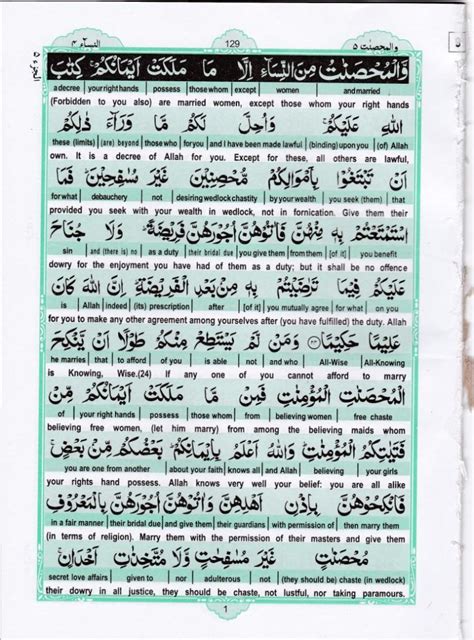 النسآء ٤ 129 والمحصنت ٥
وَالْمُحْصَنٰتُ مِنَ النِّسَآءِ اِلَّا مَا مَلَكَتْ اَيْمَانُكُمْ ۚ كِتٰبَ
a decree | your right hands | possess | those whom | except | women | and married
(Forbidden to you also) are married women, except those whom your right hands
اللّٰهِ عَلَيْكُمْ ۚ وَاُحِلَّ لَكُمْ مَّا وَرَآءَ ذٰلِكُمْ
these (limits) | (are) beyond | those who | for you | and I have been made lawful | (binding) upon you | (of) Allah
own. It is a decree of Allah for you. Except for these, all others are lawful,
اَنْ تَبْتَغُوْا بِاَمْوَالِكُمْ مُّحْصِنِيْنَ غَيْرَ مُسٰفِحِيْنَ ۗ فَمَا
for what | debauchery | not | desiring wedlock chastity | by your wealth | you seek (them) | that
provided you seek with your wealth in wedlock, not in fornication. Give them their
اسْتَمْتَعْتُمْ بِهٖ مِنْهُنَّ فَاٰتُوْهُنَّ اُجُوْرَهُنَّ فَرِيْضَةً ۗ وَلَا جُنَاحَ
sin | and (there is) no | as a duty | their bridal due | you give them | from them | [of it] | you benefit
dowry for the enjoyment you have had of them as a duty; but it shall be no offence
عَلَيْكُمْ فِيْمَا تَرٰضَيْتُمْ بِهٖ مِنْۢ بَعْدِ الْفَرِيْضَةِ ۗ اِنَّ اللّٰهَ كَانَ
is | Allah | indeed | (its) prescription | after | [of it] | you mutually agree | for what | on you
for you to make any other agreement among yourselves after (you have fulfilled) the duty. Allah
عَلِيْمًا حَكِيْمًا ﴿٢٤﴾ وَمَنْ لَّمْ يَسْتَطِعْ مِنْكُمْ طَوْلًا اَنْ يَّنْكِحَ
he marries | that | to afford | of you | is able | not | and who | All-Wise | All-Knowing
is Knowing, Wise.(24) If any one of you cannot afford to marry
الْمُحْصَنٰتِ الْمُؤْمِنٰتِ فَمِنْ مَّا مَلَكَتْ اَيْمَانُكُمْ مِّنْ
of | your right hands | possess | those whom | from | believing women | free chaste
believing free women, (let him marry) from among the believing women whom
فَتَيٰتِكُمُ الْمُؤْمِنٰتِ ۗ وَاللّٰهُ اَعْلَمُ بِاِيْمَانِكُمْ ۗ بَعْضُكُمْ مِّنْۢ بَعْضٍ ۚ
you are one from another | about your faith | knows all | and Allah | believing | your girls
your rights hand possess. Allah knows very well your belief: you are all alike
فَانْكِحُوْهُنَّ بِاِذْنِ اَهْلِهِنَّ وَاٰتُوْهُنَّ اُجُوْرَهُنَّ بِالْمَعْرُوْفِ
in a fair manner | their bridal due | and give them | their guardians | with permission of | then marry them
(in terms of religion). Marry them with the permission of their masters and give them
مُحْصَنٰتٍ غَيْرَ مُسٰفِحٰتٍ وَّلَا مُتَّخِذٰتِ اَخْدَانٍ ۚ
secret love affairs | given to | nor | adulterous | not | (they should be) chaste (in wedlock)
their dowry in all justice, they should be chaste, not lustful, nor taking paramours.
1